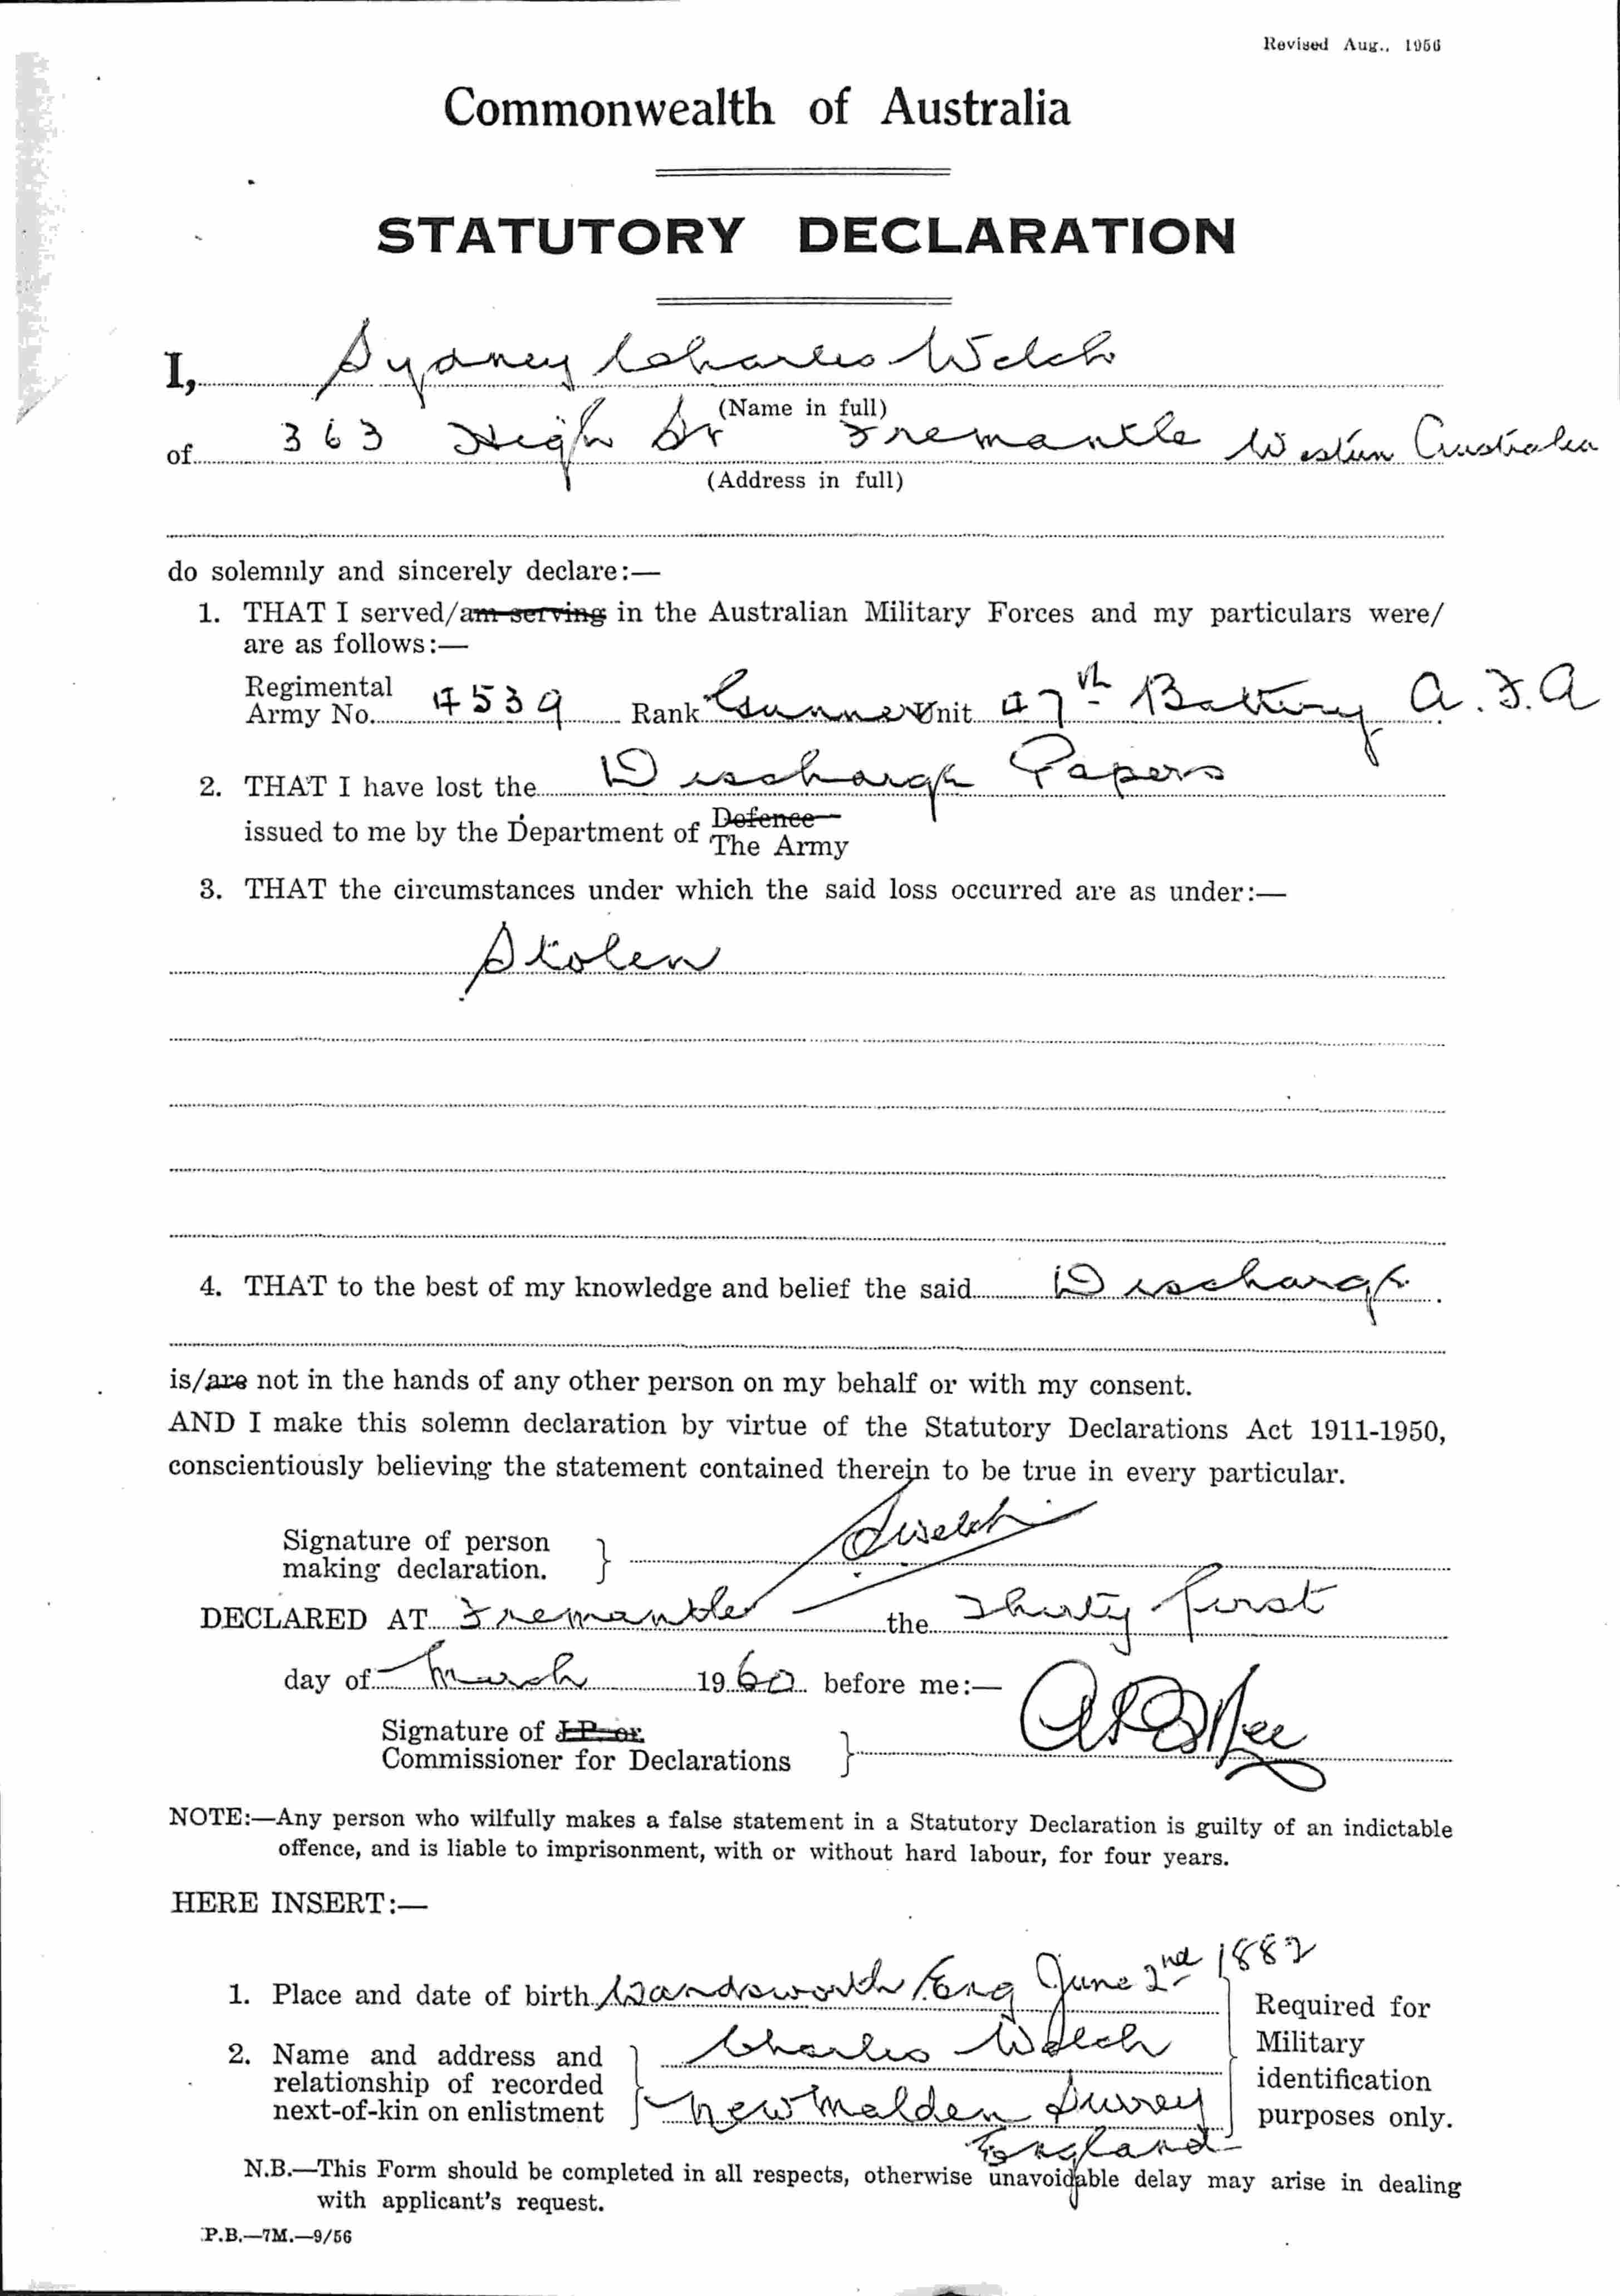 Revised Aug., 1956
Commonwealth of Australia
STATUTORY DECLARATION
I, Sydney Charles Welch
(Name in full)
of 363 High St Fremantle Western Australia
(Address in full)
do solemnly and sincerely declare:—
1. THAT I served/am serving in the Australian Military Forces and my particulars were/
are as follows:—
Regimental
Army No. 4539 Rank Gunner Unit 47th Battery A.F.A
2. THAT I have lost the Discharge Papers
issued to me by the Department of Defence
The Army
3. THAT the circumstances under which the said loss occurred are as under:—
Stolen
4. THAT to the best of my knowledge and belief the said Discharge
is/are not in the hands of any other person on my behalf or with my consent.
AND I make this solemn declaration by virtue of the Statutory Declarations Act 1911-1950,
conscientiously believing the statement contained therein to be true in every particular.
Signature of person
making declaration. } SWelch
DECLARED AT Fremantle the Thirty first
day of March 1960 before me:—
Signature of J.P. or
Commissioner for Declarations }
NOTE:—Any person who wilfully makes a false statement in a Statutory Declaration is guilty of an indictable
offence, and is liable to imprisonment, with or without hard labour, for four years.
HERE INSERT:—
1. Place and date of birth Wandsworth Eng June 2nd 1882
2. Name and address and
relationship of recorded
next-of-kin on enlistment } Charles Welch
New Malden Surrey
England
Required for
Military
identification
purposes only.
N.B.—This Form should be completed in all respects, otherwise unavoidable delay may arise in dealing
with applicant's request.
P.B.—7M.—9/56